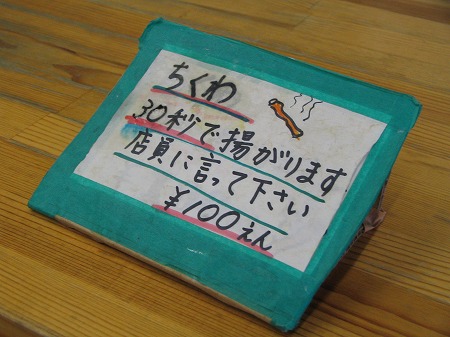 ちくわ
30秒で揚がります
店員に言って下さい
¥100えん